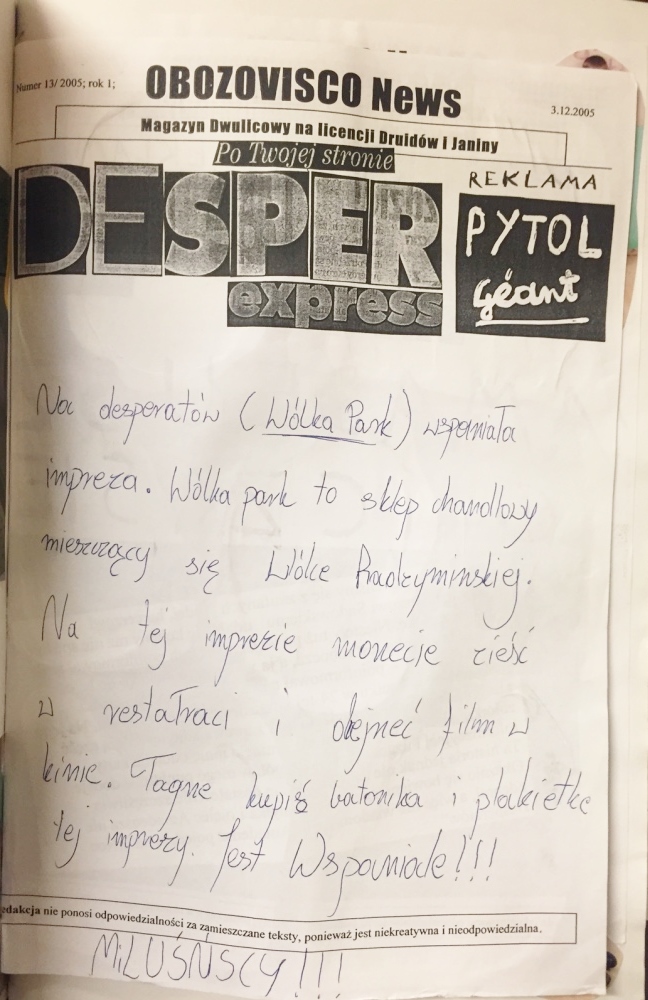 Numer 13/ 2005; rok 1;
OBOZOVISCO NeWS
3.12.2005
Magazyn Dwulicowy na licencji Druidów i Janiny
Po Twojej stronie
DESPER
express
REKLAMA
PYTOL
géant
Na desperatów (Wólka Park) wspaniała
impreza. Wólka park to sklep chandlowy
mieszczący się Wólce Radzyminskiej.
Na tej imprezie monecie zieść
w restałraci i obejneć film w
kinie. Tagne kupiś batonika i plakietke
tej imprezy. Jest Wspaniale!!!
edakcja nie ponosi odpowiedzialności za zamieszczane teksty, ponieważ jest niekreatywna i nieodpowiedzialna.
MiLUŚŃSCY!!!